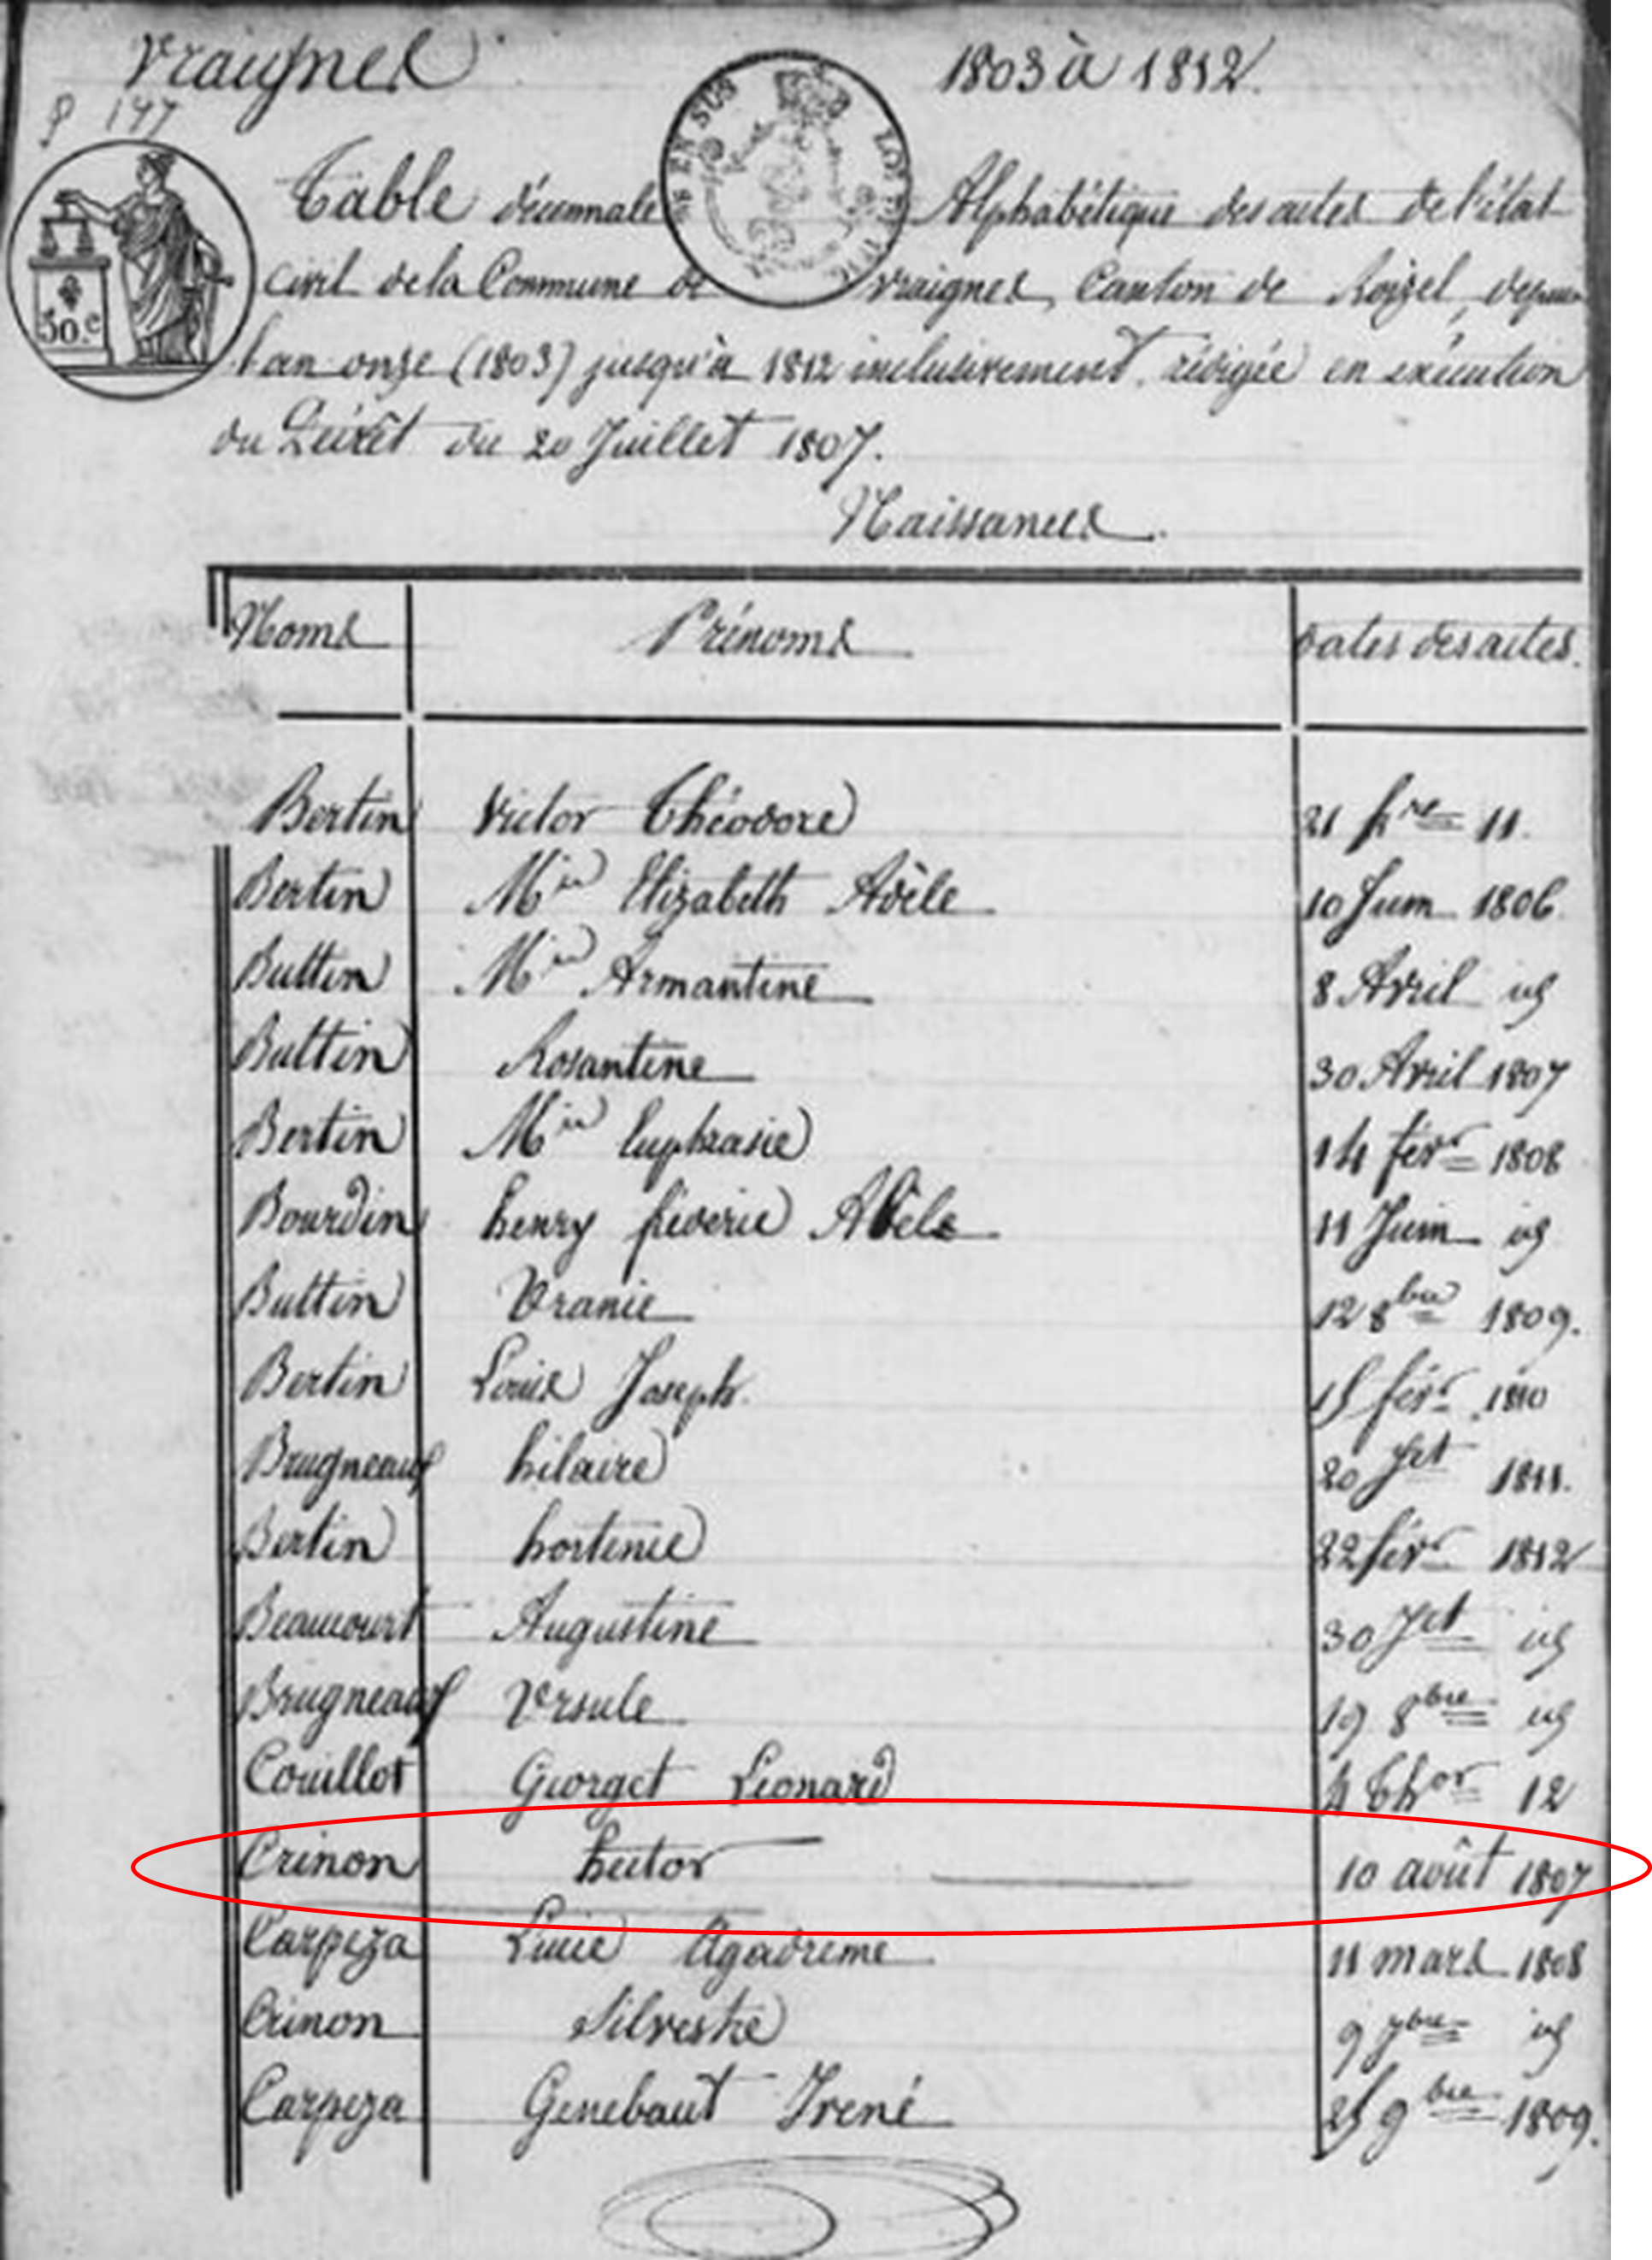 Vraignes 1803 à 1812.
P 147
Table décennale Alphabétique des actes de l'état
civil de la Commune de Vraignes, Canton de Roisel, depuis
l'an onze (1803) jusqu'à 1812 inclusivement, rédigée en exécution
du Décrêt du 20 Juillet 1807.
50.c
EN SUS
Naissances.
Noms Prénoms Dates des actes.
Bertin Victor Théodore 21 11.
Bertin Mie Elizabeth Adèle 10 Juin 1806
Buttin Mie Armantine 8 Avril id
Buttin Rosantine 30 Avril 1807
Bertin Mie Euphrasie 14 févr 1808
Bourdin henry Abèle 11 Juin id
Buttin Uranie 12 8bre 1809.
Bertin Louis Joseph. 15 févr 1810
Brugneaux hilaire 20 Jet 1811.
Bertin hortense 22 févr 1812
Beaucourt Augustine 30 Jet id
Brugneaux Ursule 19 8bre id
Couillot Georget Léonard 4 thor 12
Crinon hector 10 août 1807
Carpeza Lucie Agadreme 11 mars 1808
Crinon Silvestre 9 7bre id
Carpeza Genebaut Irené 25 9bre 1809.